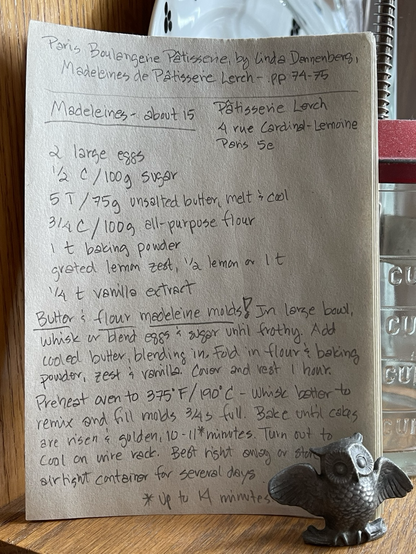 Paris Boulangerie Pâtisserie, by Linda Dannenberg,
Madeleines de Pâtisserie Lerch - pp 74-75
Madeleines - about 15
Pâtisserie Lerch
4 rue Cardinal-Lemoine
Paris 5e
2 large eggs
1/2 C/100g sugar
5 T/75g unsalted butter, melt & cool
3/4 C/100g all-purpose flour
1 t baking powder
grated lemon zest, 1/2 lemon or 1 t
1/4 t vanilla extract
Butter & flour madeleine molds! In large bowl,
whisk or blend eggs & sugar until frothy. Add
cooled butter, blending in. Fold in flour & baking
powder, zest & vanilla. Cover and rest 1 hour.
Preheat oven to 375°F/190°C - Whisk batter to
remix and fill molds 3/4s full. Bake until cakes
are risen & golden, 10-11* minutes. Turn out to
cool on wire rack. Best right away or
airtight container for several days
* Up to 14 minutes
CU
CU
CU